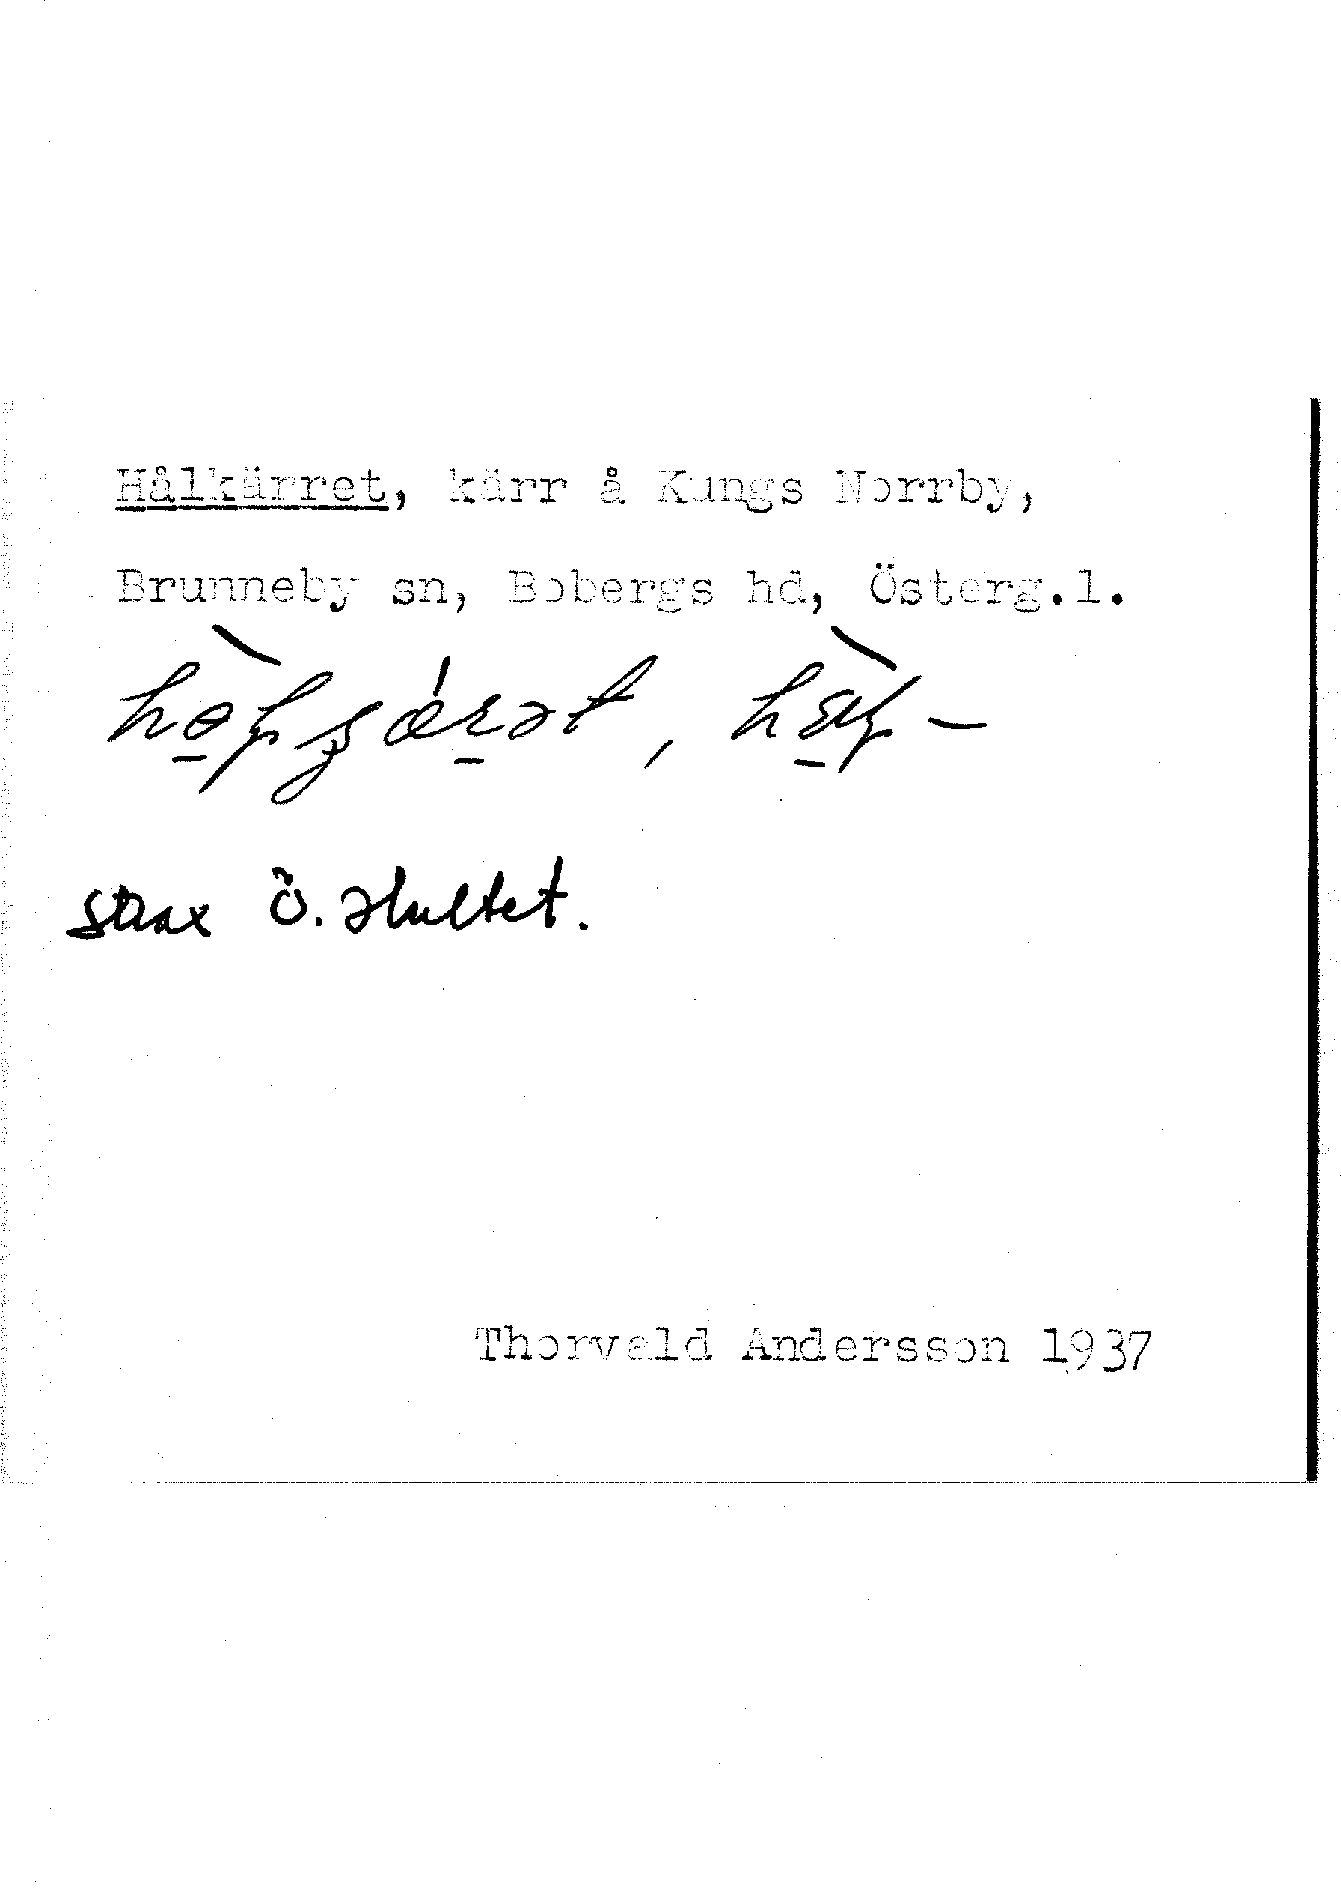 Hålkärret, kärr å Kungs Norrby,
Brunneby sn, Bobergs hd, Österg.l.
strax Ö. Hultet.
Thorvald Andersson 1937